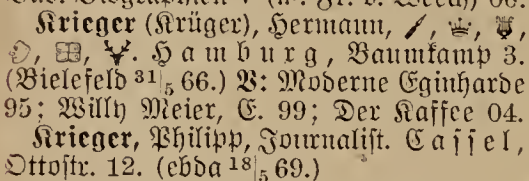 Krieger (Krüger), Hermann,
Hamburg, Baumkamp 3.
(Bielefeld 31|5 66.) V: Moderne Eginharde
95; Willy Meier, E. 99; Der Kaffee 04.
Krieger, Philipp, Journalist. Cassel,
Ottostr. 12. (ebda 18|5 69.)